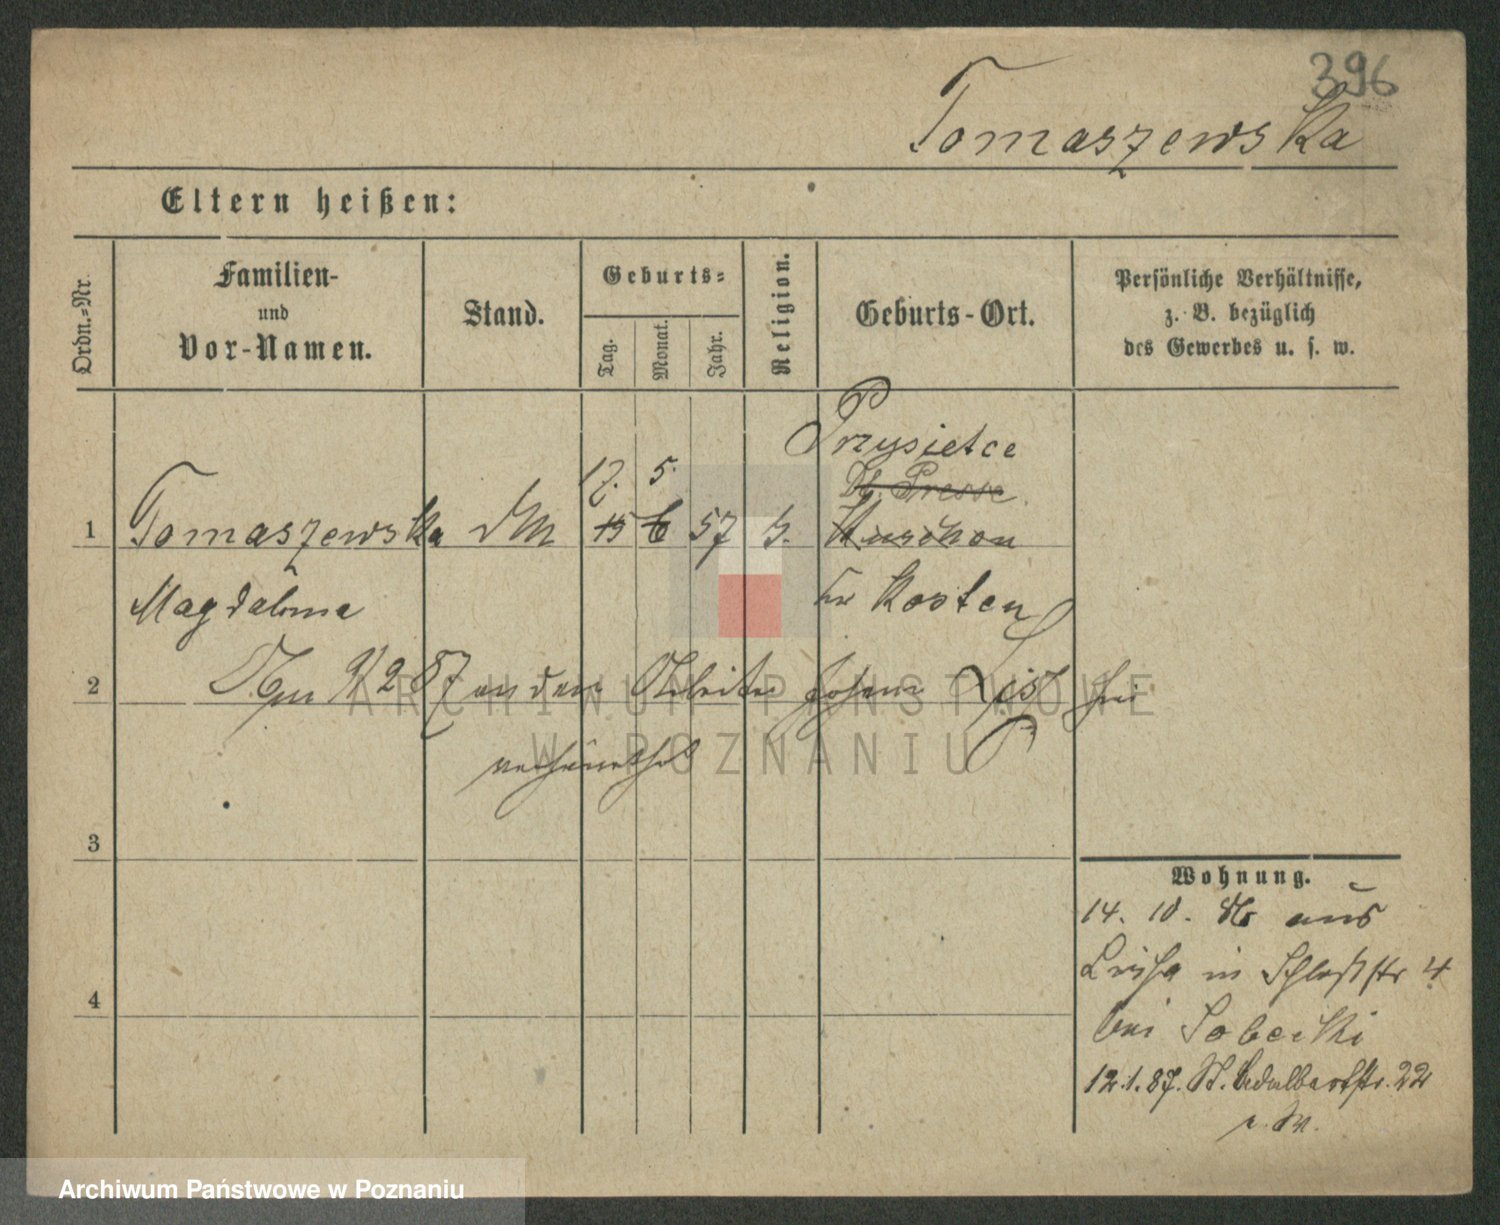 396
Tomaszewska
Eltern heißen:
Ordn.-Nr.
Familien-
und
Vor-Namen.
Stand.
Geburts-
Tag.
Monat.
Jahr.
Religion.
Geburts-Ort.
Persönliche Verhältnisse,
z. B. bezüglich
des Gewerbes u. s. w.
Przysietce
17. 5.
Dt. Presse
1 Tomaszewska 15 6 57 Kuschon
Magdalena Kr Kosten
2 87 an den Arbeiter Johann List hier
verheirathet
ARCHIWUM PAŃSTWOWE
W POZNANIU
3
Wohnung.
14. 10. 86 aus
in Schloßstr 4
4
bei Sobecki
12.1.87. St. Adalbertstr. 22
Archiwum Państwowe w Poznaniu